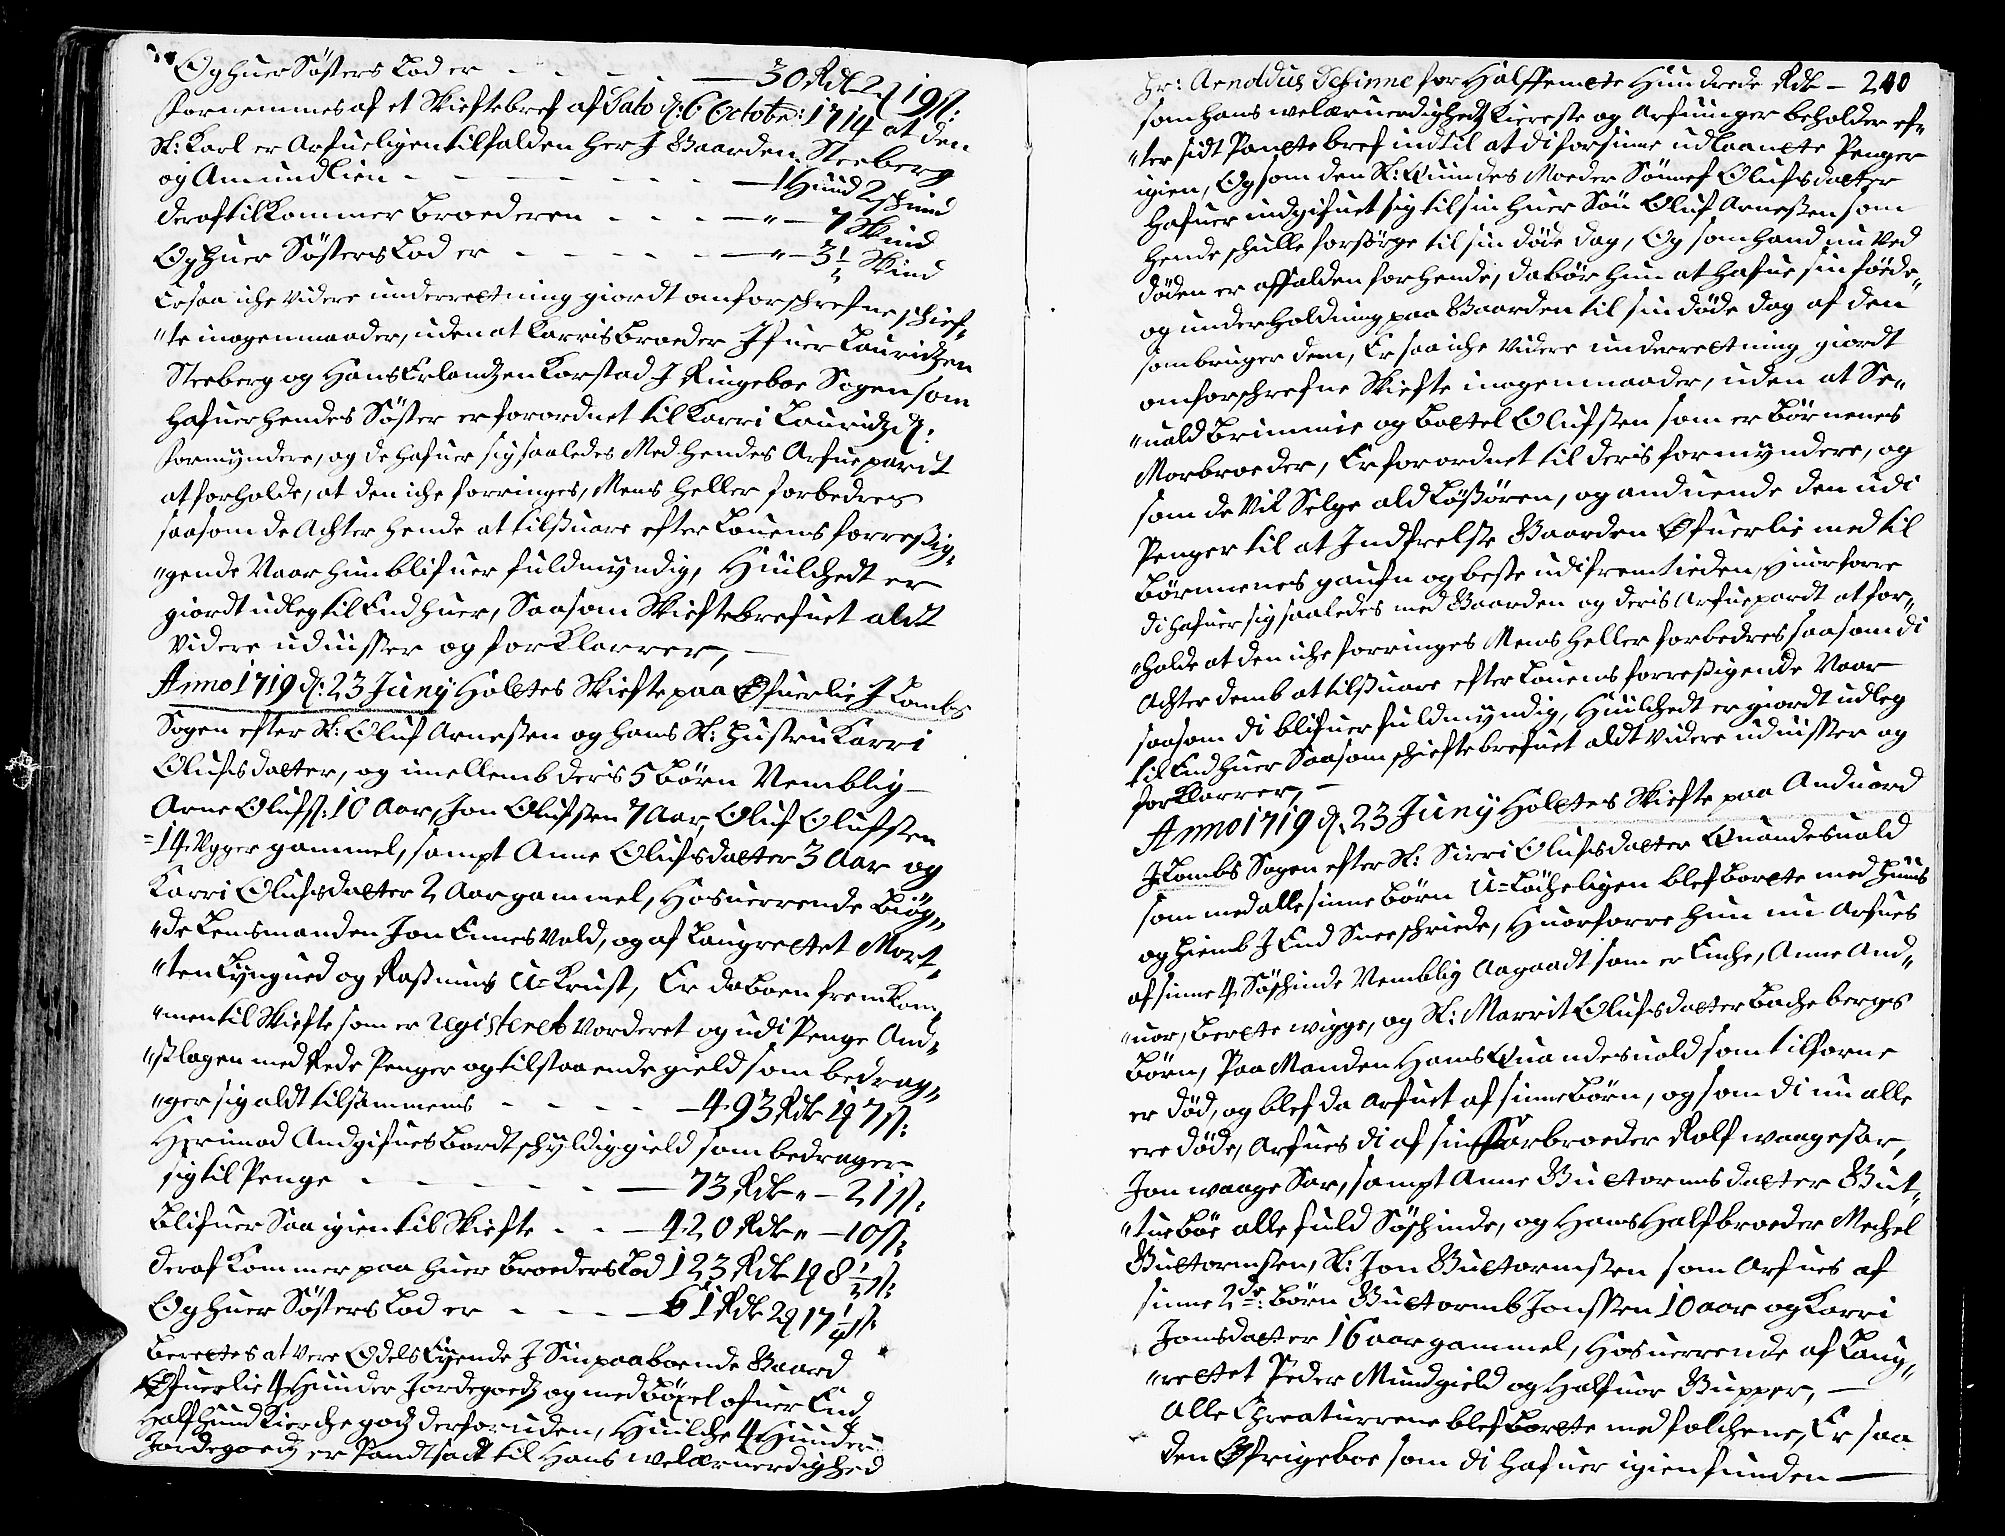 Og huer Søsters Lod er - - - - 30 Rdr 2 q 19 s:
fornemmes af et Skieftebref af Dato d: 6 Octobr: 1714 at den
Sl: Karl er Arfueligen tilfalden her J Gaarden Steeberg
og Amundlien - - - - - 1 Hund 2 skind
deraf tilkommer broederen - - - " - 7 Skind
Og huer Søsters Lod er - - - " - 3½ Skind
Er saa iche videre underrectning giordt om forschrefne schief-
"te i nogen maader, uden at Karris broeder Ifuer Lauridzen
Steeberg og Hans Erlandzen Korstad J Ringeboe Sogen som
hafuer hendes Søster er forordnet til Karri Lauridzd:
formyndere, og de hafuer sig saaledes Med hendes Arfuepardt
at forholde, at den iche forringes, Mens heller forbedres
saasom de Achter hende at tilsuare efter Louens forresig-
"gende Naar hun blifuer fuldmyndig, Huilchedt er
giordt udleg til End huer, Saasom Skieftebrefuet aldt
videre uduisser og forklarrer, -
Anno 1719 d: 23 Juny Holctes Skiefte paa Øfuerlie J Lombs
Sogen efter Sl: Oluf Arnessen og hans Sl: Hustru Karri
Olufsdacter, og imellemb deris 5 børn Nemblig
Arne Olufs: 10 Aar, Jon Olufssen 7 Aar, Oluf Olufssen
=14 Ugger gammel, sampt Anne Olufsdacter 3 Aar og
Karri Olufsdacter 2 Aar gammel, Hosuerrende bøg-
"de Lensmanden Jon Ennesvold, og af Laugrectet Mort-
"ten Lyngued og Rasmus U=Krust, Er da boen fremkom-
"men til Skiefte som er Registeret Vorderet og udi Penge And-
"slagen med Rede Penger og tilstaaende gield som bedrag-
"ger sig aldt tilsammens - - - - 493 Rdr 1 q 7 s:
Herimod Andgifues bordtschyldig gield som bedrager
sig til Penge - - - - - 73 Rdr " - 21 s:
Blifuer Saa igien til Skiefte - - - 420 Rdr " - 10 s:
deraf kommer paa huer Broeders Lod 123 Rdr 1 q 8½ s:
Og huer Søsters Lod er - - - 61 Rdr 2 q 17¼ s:
Berectes at vere Odels Eyende J Sin paaboende Gaard
Øfuerlie 4 Hunder Jordegoedz og med bøxel ofuer End
Half hund Kierchegodz der foruden, Huilche 4 Hunder
Jordegoedz er Pandtsadt til Hans welærverdighed
Hr: Arnoldus Schinne for Halffemcte Hundrede Rdr - 240
som hans welæruerdigheds Kiereste og Arfuinger beholder ef-
"ter sidt Panctebref indtil at di for sinne udlaancte Penger
igien, Og som den Sl: Quindes Moeder Sønnef Olufsdacter
hafuer indgifuet sig til sin huer Søn Oluf Arnessen som
hende schulle forsørge til sin døde dag, Og som hand nu ved
døden er affalden for hende, da bør hun at hafue sin føede-
og underholdning paa Gaarden til sin døde dag af den
som bruger dem, Er saa iche videre underrectning giordt
om forschrefne Skiefte i nogen maader, uden at Se-
"uald Brimmie og Boctel Olufssen som er børnenes
Morbroeder, Er forordnet til deris formyndere, og
som de vil Selge ald Løssøren, og anduende den udi
Penger til at Indfrelste Gaarden Øfuerlie med til
børnenes gaufn og beste udi fremtieden, Huorforre
di hafuer sig saaledes med Gaarden og deris Arfuepardt at for-
"holde at den iche forringes Mens heller forbedres saasom di
Achter demb at tilsuare efter Louens forresigende Naar
saasom di blifuer fuldmyndig, Huilchedt er giordt udleg
til End huer Saasom schieftebrefuet aldt videre uduisser og
forklarrer, -
Anno 1719 d: 23 Juny Holctes Skiefte paa Anduord
J Lombs Sogen efter Sl: Sirri Olufsdacter Quandesuold
som med alle sinne børn U=Løcheligen blef borte med huus
og hiemb J End Sneeschriede, Huorforre hun nu Arfues
af sinne 4 Søschinde Nemblig Aagaadt som er Enche, Anne And-
"uor, Berete wigge, og Sl: Marrit Olufsdacter Bachebergs
børn, Paa Manden Hans Quandesuold som tilforne
er død, og blef da Arfuet af sinne børn, og som di nu alle
ere døde, Arfues di af sin Farbroeder Rolf waagesar,
Jon waage Sar, sampt Anne Guctormsdacter Gut-
"tuebøe alle fuld Søschinde, og Hans Halfbroeder Mechel
Guctormsen, Sl: Jon Guctormssen som Arfues af
sinne 2de: børn Guctormb Jonssen 10 aar og Karri
Jonsdacter 16 aar gammel, Hosuerrende af Laug-
"rettet Peder Mundgield og Halfuor Gupper, -
Alle Chreaturrene blef borcte med folchene, Er saa
den Øfrige boe som di hafuer igien funden -